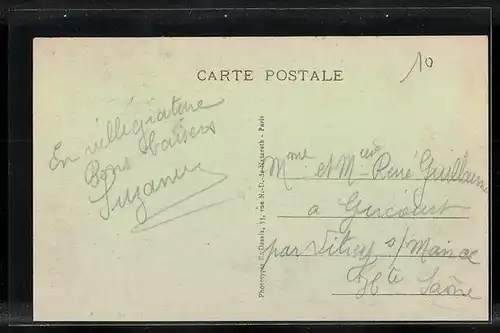 CARTE POSTALE
10
En villégiature
Bons baisers
Suzanne
Mme et Mr René Guillaume
a
par Vitrey s/Mance
Hte Saône
Phototypie E. Desaix, 11, rue N.-D.-de-Nazareth - Paris